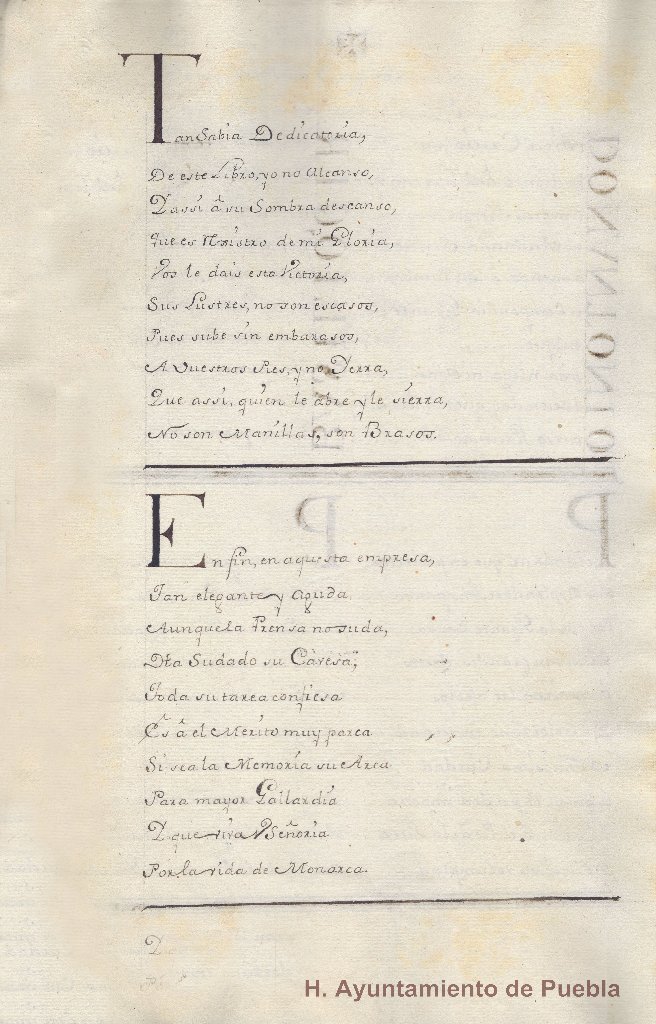 Tan Sabia Dedicatoria,
De este Libro, yo no Alcanso,
Y assi â su Sombra descanso,
Que es Nuistro de mi Gloria,
Vos le dais esta Victoria,
Sus Lustres, no son escasos,
Pues sube sin embarasos,
A Vuestros Pies, y no Yerra,
Que assi, quien le abre y le sierra,
No son Manillas, son Brasos.
En fin, en aquesta empresa,
Tan elegante y Aguda
Aunque la Prensa no suda,
Sudado su Cavesa,
Toda su tarea confiesa
Es â el Merito muy parca
Si sea la Memoria su Arca
Para mayor Gallardia
Y que viva V Señoria
Por la vida de Monarca.
Y
DON ANTONIO
P
P
H. Ayuntamiento de Puebla